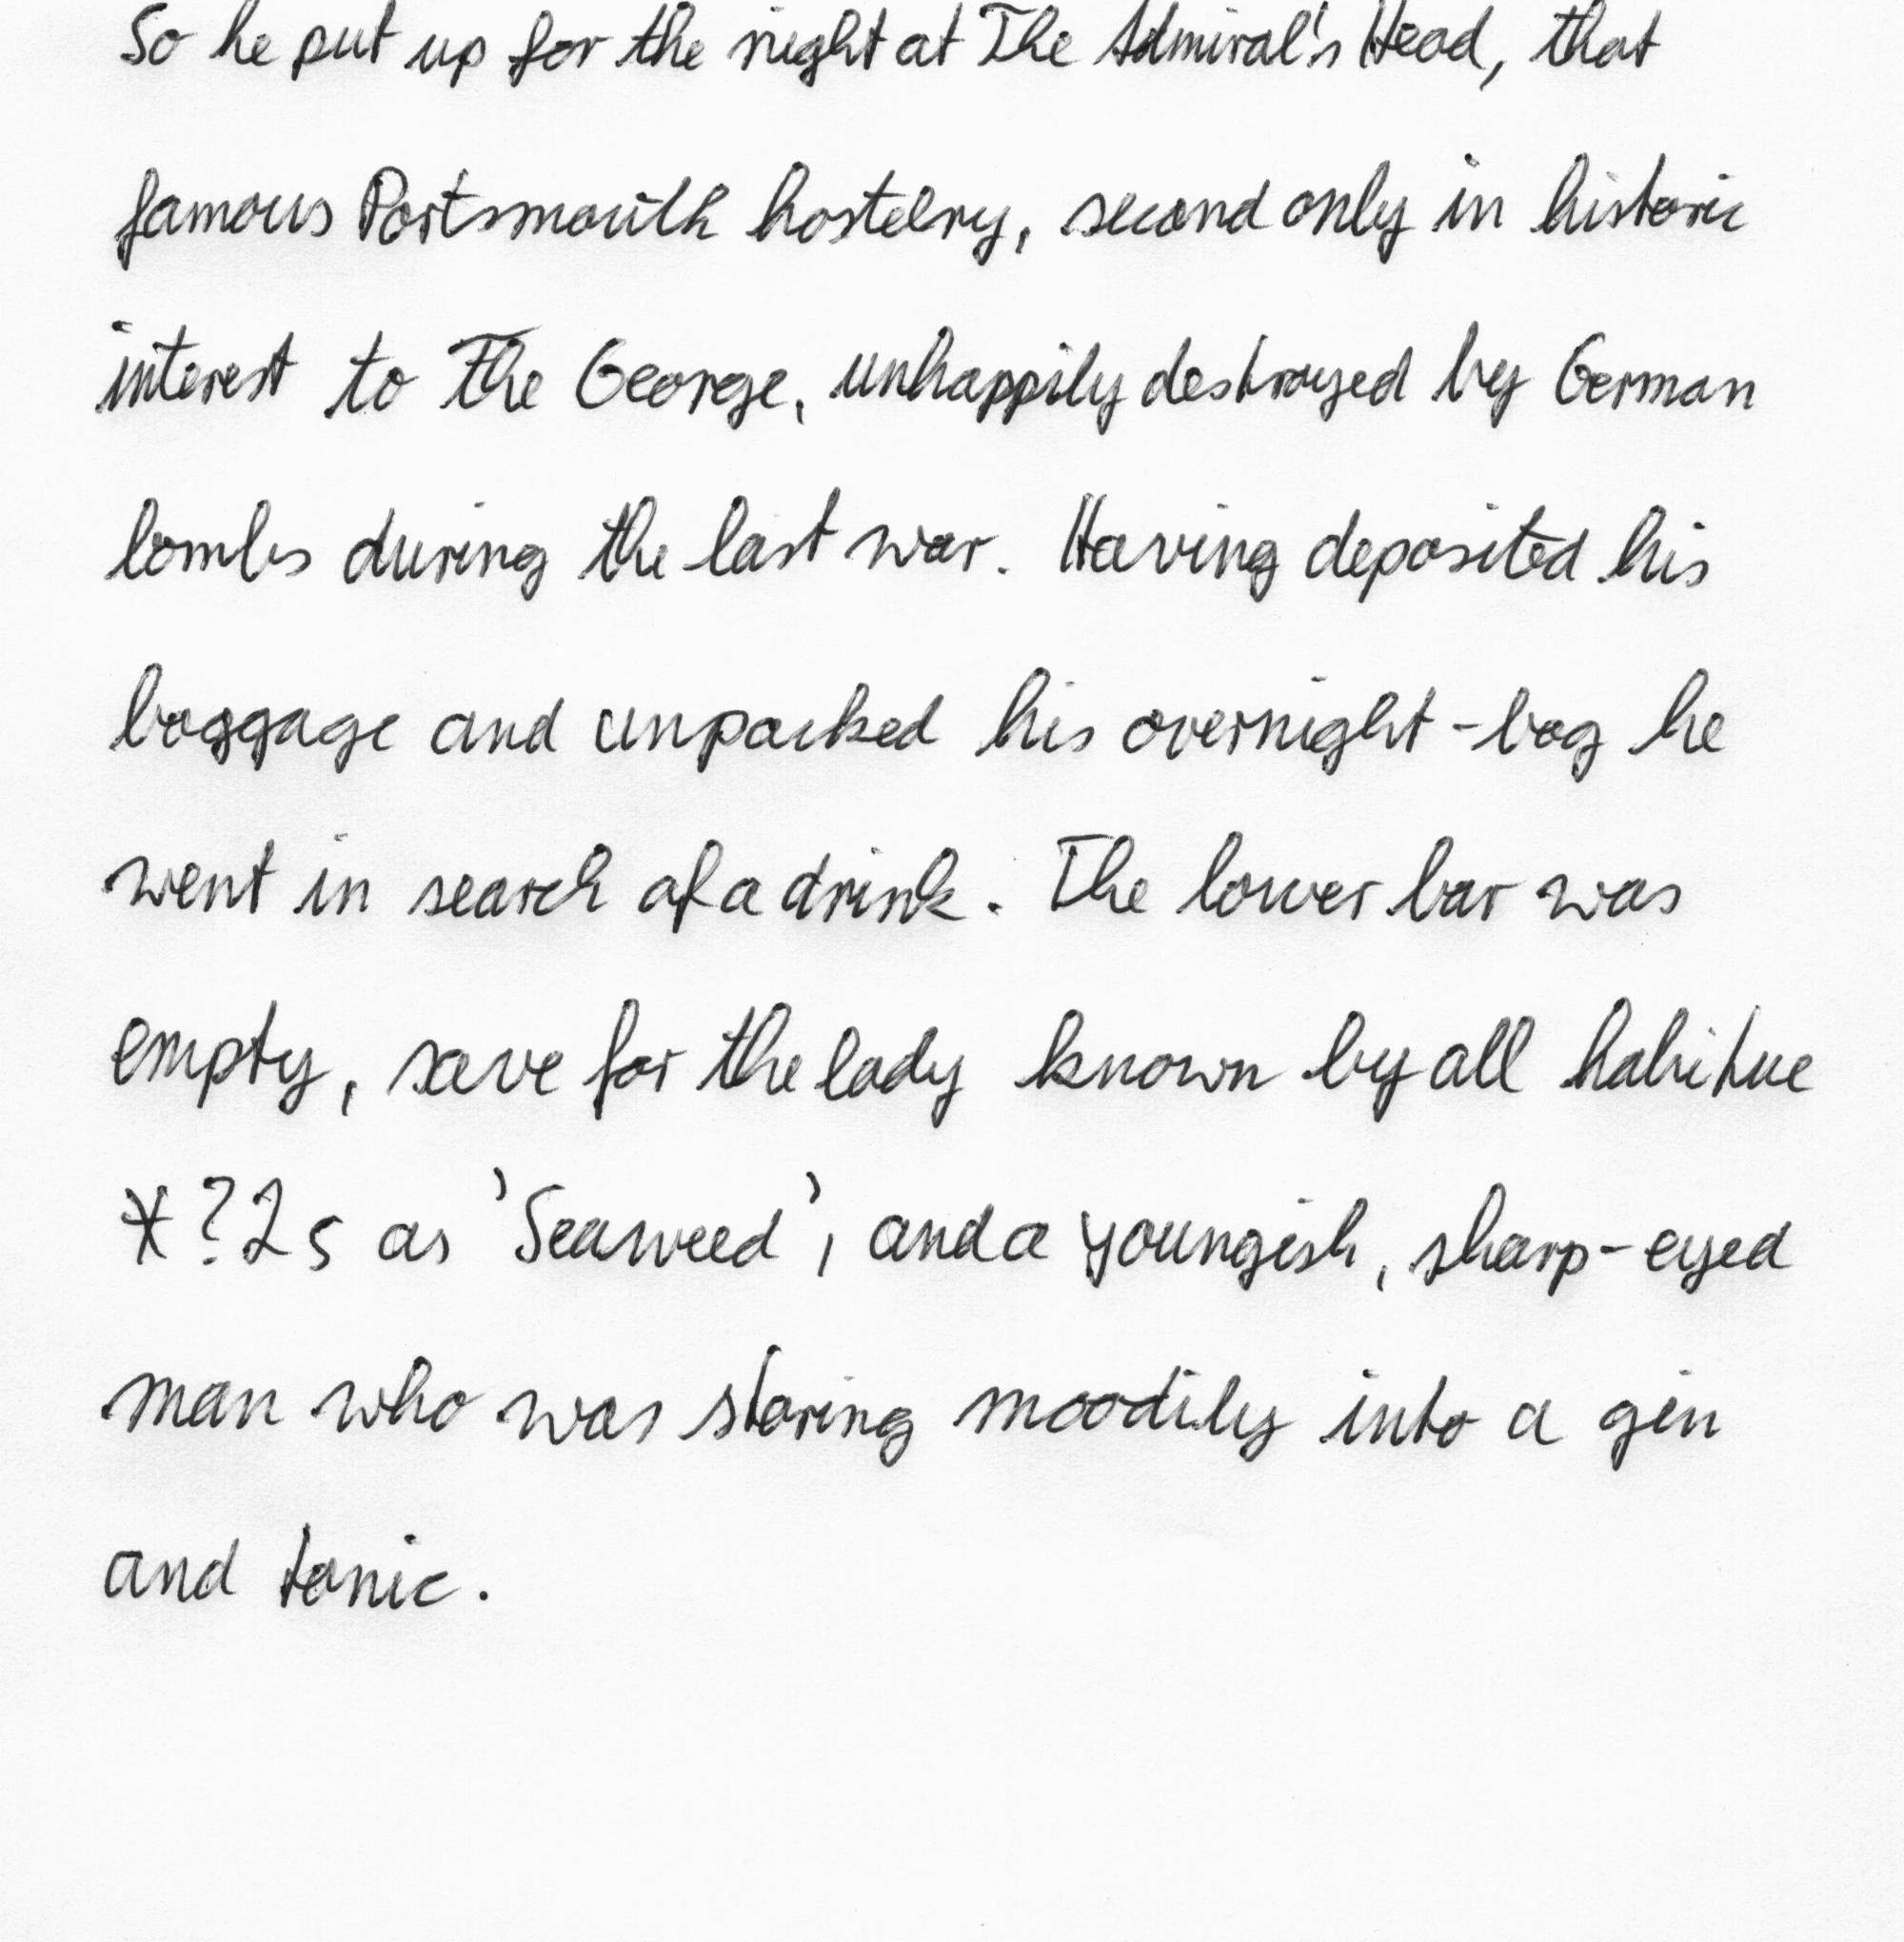 So he put up for the night at The Admiral's Head, that
famous Portsmouth hostelry, second only in historic
interest to The George, unhappily destroyed by German
bombs during the last war. Having deposited his
baggage and unpacked his overnight-bag he
went in search of a drink. The lower bar was
empty, save for the lady known by all habitue
*?2s as 'Seaweed', and a youngish, sharp-eyed
man who was staring moodily into a gin
and tonic.